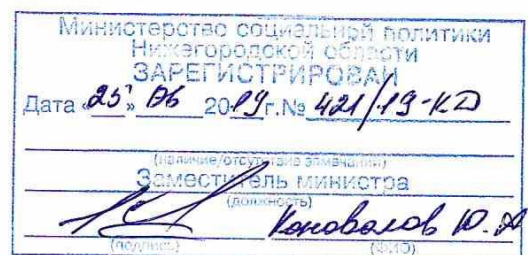 Министерство социальной политики
Нижегородской области
ЗАРЕГИСТРИРОВАН
Дата «25» 06 2019 г. № 421/19-КД
(наличие/отсутствие замечаний)
Заместитель министра
(должность)
Коновалов Ю. А
(подпись) (ФИО)